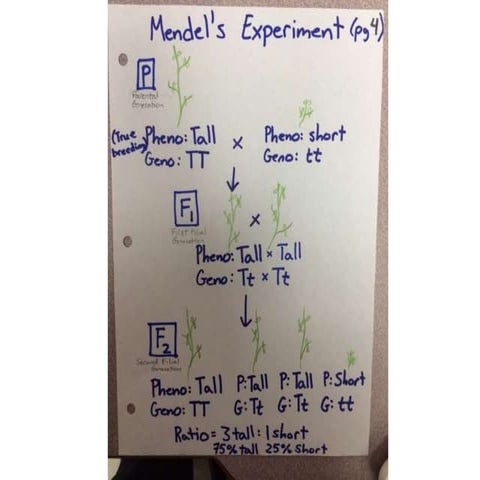 Mendel's Experiment (pg 4)
P
Parental
Generation
(True breeding) Pheno: Tall × Pheno: short
Geno: TT Geno: tt
F1
First Filial
Generation
Pheno: Tall × Tall
Geno: Tt × Tt
F2
Second Filial
Generation
Pheno: Tall P: Tall P: Tall P: Short
Geno: TT G: Tt G: Tt G: tt
Ratio = 3 tall : 1 short
75% tall 25% short